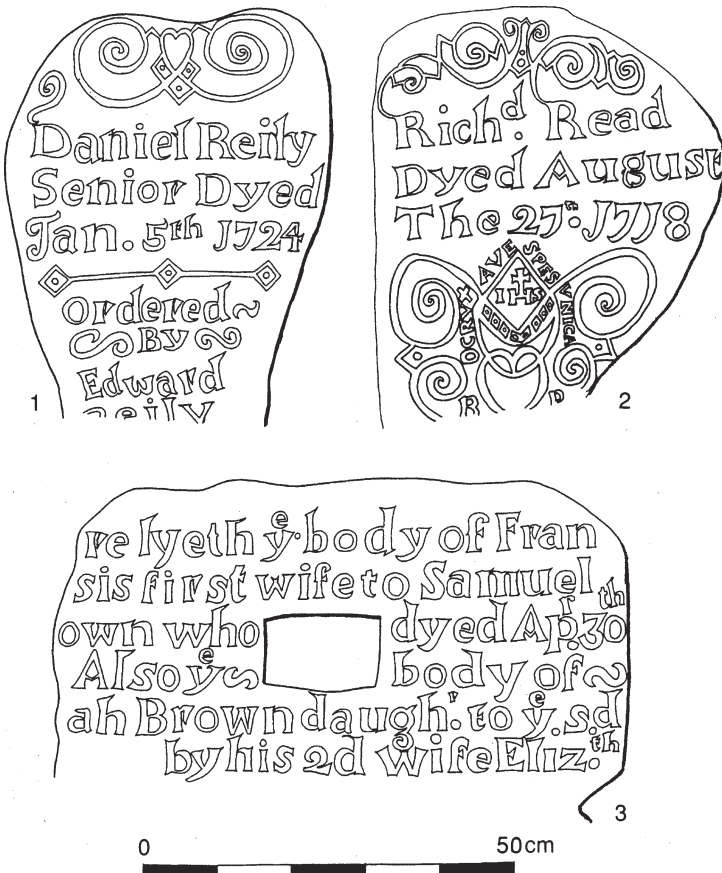 Daniel Reily
Senior Dyed
Jan. 5th 1724
Ordered~
By
Edward
Reily
1
Richd. Read
Dyed August
The 27th. 1718
AVE SPES
OCRVX VNICA
IHS
R
2
re lyeth ye. body of Fran
sis first wife to Samuel
own who dyed Apr. 30th
Also ye body of~
ah Brown daughr. to ye. sd
by his 2d wife Eliz.th
3
0 50cm